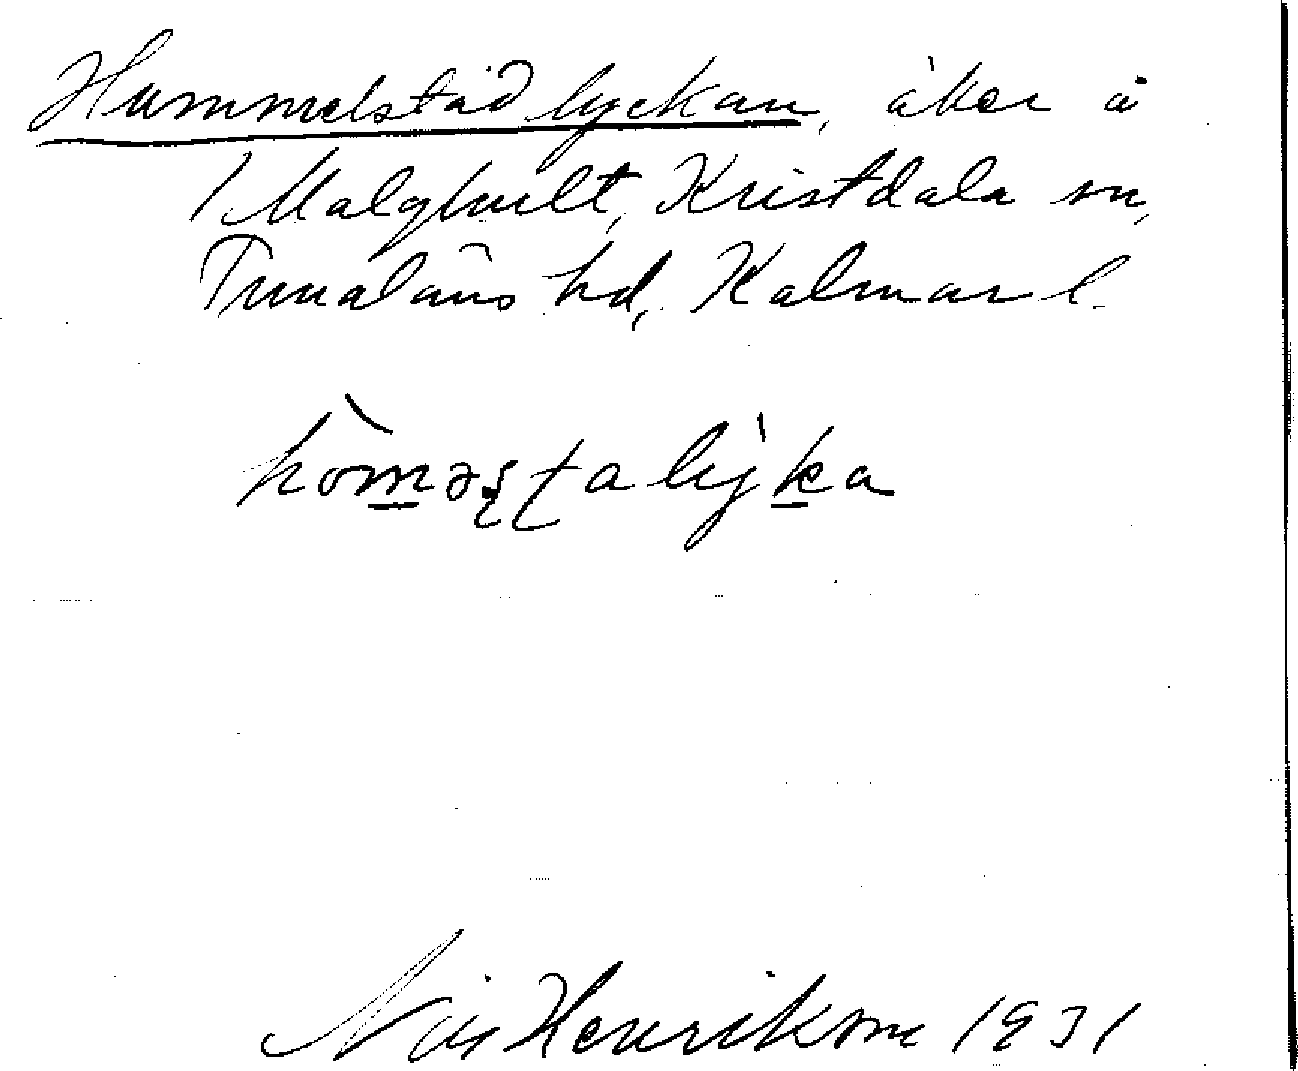 Hummelstadlyckan, åker å
1 Malghult, Kristdala sn,
Tunaläns hd, Kalmar l.
hòmәʂʈalỳka
Nils Henriksson 1931